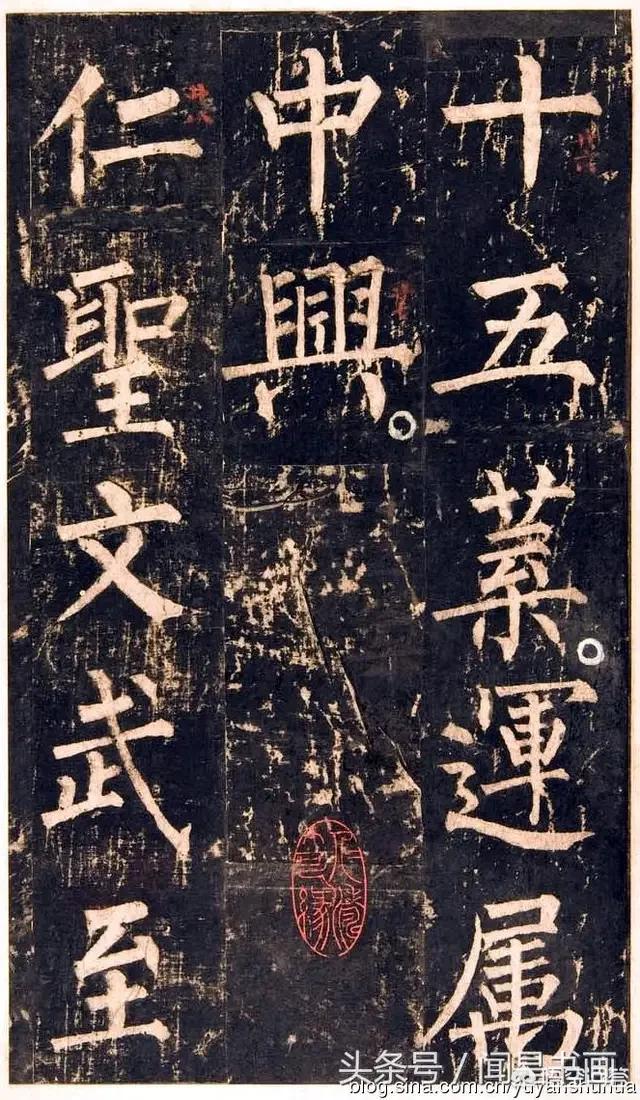 十五葉運属
中興
仁聖文武至
头条号
blog.sina.com.cn/yuyanshuhua